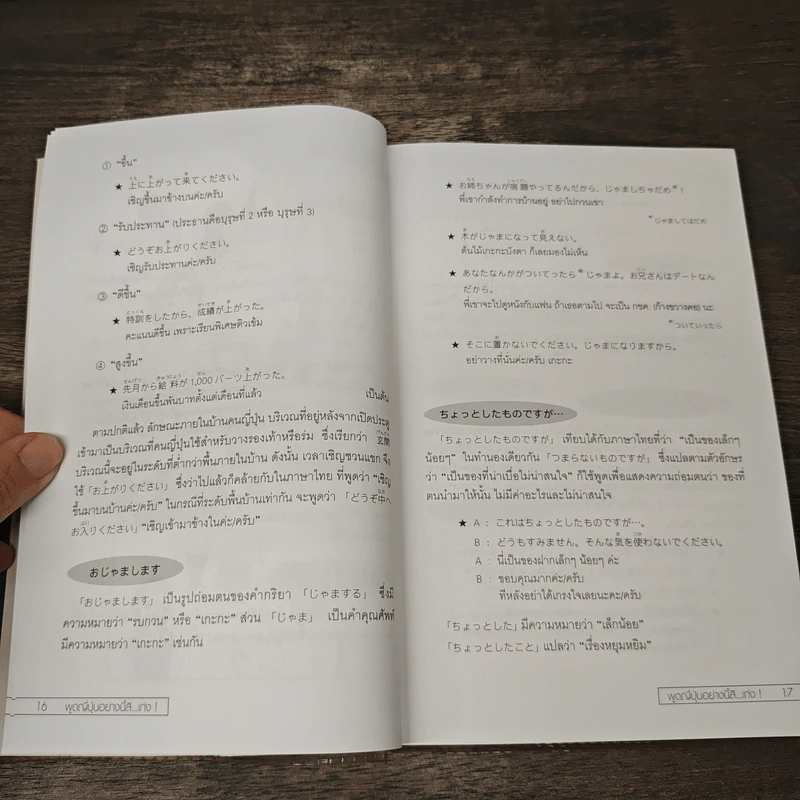 ① "ขึ้น"
★ 上に上がって来てください。
เชิญขึ้นมาข้างบนค่ะ/ครับ
② "รับประทาน" (ประธานคือบุรุษที่ 2 หรือ บุรุษที่ 3)
★ どうぞお上がりください。
เชิญรับประทานค่ะ/ครับ
③ "ดีขึ้น"
★ 特訓をしたから、成績が上がった。
คะแนนดีขึ้น เพราะเรียนพิเศษติวเข้ม
④ "สูงขึ้น"
★ 先月から給料が 1,000 バーツ上がった。
เงินเดือนขึ้นพันบาทตั้งแต่เดือนที่แล้ว
เป็นต้น
ตามปกติแล้ว ลักษณะภายในบ้านคนญี่ปุ่น บริเวณที่อยู่หลังจากเปิดประตู
เข้ามาเป็นบริเวณที่คนญี่ปุ่นใช้สำหรับวางรองเท้าหรือร่ม ซึ่งเรียกว่า 玄関
บริเวณนี้จะอยู่ในระดับที่ต่ำกว่าพื้นภายในบ้าน ดังนั้น เวลาเชิญชวนแขก จึง
ใช้「お上がりください」ซึ่งว่าไปแล้วก็คล้ายกับในภาษาไทย ที่พูดว่า "เชิญ
ขึ้นมาบนบ้านค่ะ/ครับ" ในกรณีที่ระดับพื้นบ้านเท่ากัน จะพูดว่า「どうぞ中へ
お入りください」"เชิญเข้ามาข้างในค่ะ/ครับ"
おじゃまします
「おじゃまします」เป็นรูปถ่อมตนของคำกริยา「じゃまする」ซึ่งมี
ความหมายว่า "รบกวน" หรือ "เกะกะ" ส่วน「じゃま」เป็นคำคุณศัพท์
มีความหมายว่า "เกะกะ" เช่นกัน
16 พูดญี่ปุ่นอย่างนี้สิ...เก่ง !
★ お姉ちゃんが宿題やってるんだから、じゃましちゃだめ* !
พี่เขากำลังทำการบ้านอยู่ อย่าไปกวนเขา
*じゃましてはだめ
★ 木がじゃまになって見えない。
ต้นไม้เกะกะบังตา ก็เลยมองไม่เห็น
★ あなたなんかがついてったら*じゃまよ。お兄さんはデートなん
だから。
พี่เขาจะไปดูหนังกับแฟน ถ้าเธอตามไป จะเป็น กขค. (ก้างขวางคอ) นะ
*ついていったら
★ そこに置かないでください。じゃまになりますから。
อย่าวางที่นั่นค่ะ/ครับ เกะกะ
ちょっとしたものですが…
「ちょっとしたものですが」เทียบได้กับภาษาไทยที่ว่า "เป็นของเล็กๆ
น้อยๆ" ในทำนองเดียวกัน「つまらないものですが」ซึ่งแปลตามตัวอักษร
ว่า "เป็นของที่น่าเบื่อไม่น่าสนใจ" ก็ใช้พูดเพื่อแสดงความถ่อมตนว่า ของที่
ตนนำมาให้นั้น ไม่มีค่าอะไรและไม่น่าสนใจ
★ A : これはちょっとしたものですが…。
B : どうもすみません。そんな気を使わないでください。
A : นี่เป็นของฝากเล็กๆ น้อยๆ ค่ะ
B : ขอบคุณมากค่ะ/ครับ
ทีหลังอย่าได้เกรงใจเลยนะคะ/ครับ
「ちょっとした」มีความหมายว่า "เล็กน้อย"
「ちょっとしたこと」แปลว่า "เรื่องหยุมหยิม"
พูดญี่ปุ่นอย่างนี้สิ...เก่ง ! 17